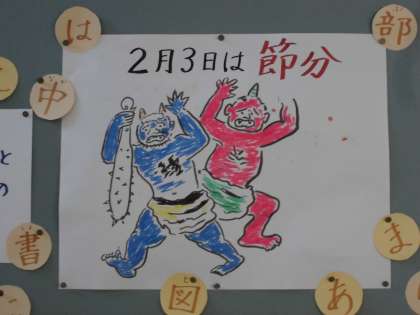 2月3日は節分
は
部
中
と
の
書
ま
図
あ